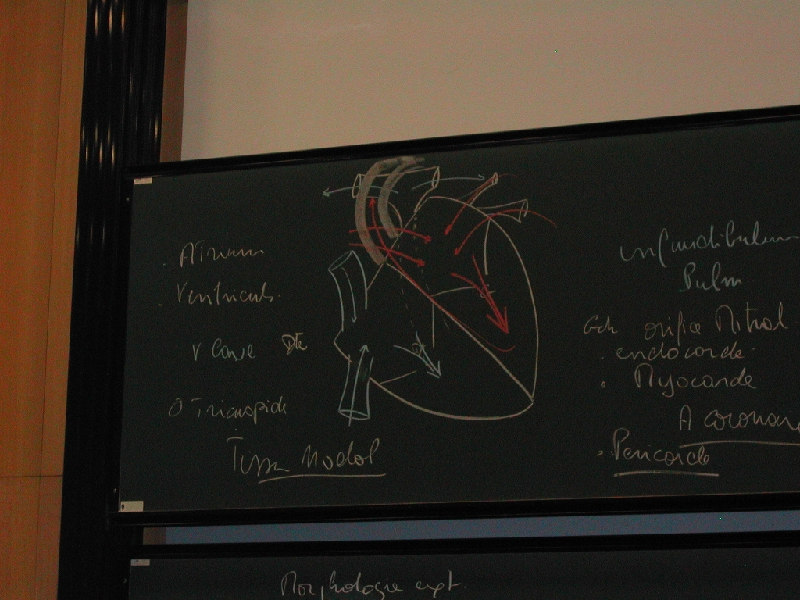 Atrium
Ventricule
V Cave Dte
O Tricuspide
Tissu Nodal
infundibulum
Pulm
orifice Mitral
endocarde
Myocarde
A coronar
Pericarde
Morphologie ext.